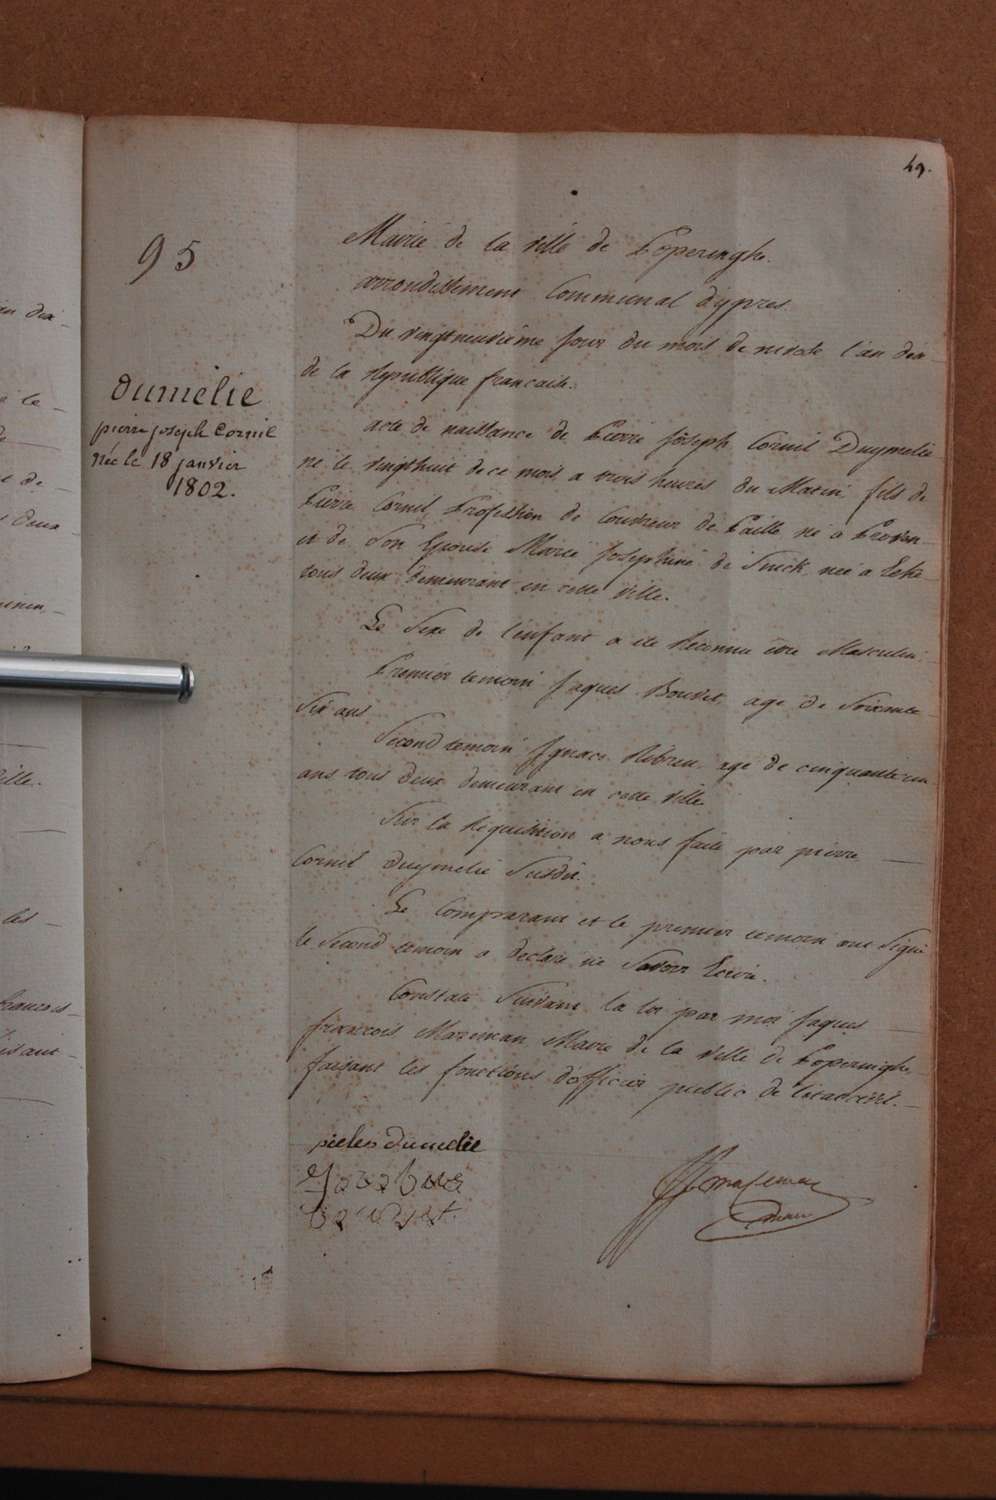 49.
95
Mairie de la ville de Poperinghe.
arrondissement Communal d'ypres.
Du vingtneuvieme jour du mois de nivose l'an dix
de la Republique francaise.
dumelie
pierre joseph Cornil
née le 18 janvier
1802.
acte de naissance de Pierre Joseph Cornil Duymelie
né le vingthuit de ce mois a trois heures du Matin fils de
Pierre Cornil Profession de Couvreur de Paille né a Proven
et de Son Epouse Marie Josephine de Snick née a Elke
tous deux demeurant en cette Ville.
Le Sexe de l'enfant a ete Reconnu etre Masculin.
Premier temoin Jaques Bouvet, age de Soixante
Six ans
Second temoin Ignace Rebreu, age de cinquante un
ans tous deux demeurant en cette ville
Sur la Requisition a nous faite par pierre
Cornil Duymelie Susdit.
Le Comparant et le premier temoin ont Signé
le Second temoin a declaré ne Savoir Ecrire.
Constaté Suivant la loi par moi Jaques
francois Mazeman Maire de la Ville de Poperinghe
faisant les fonctions d'officier public de l'etat civil.
pieter dumelie
Jacobus